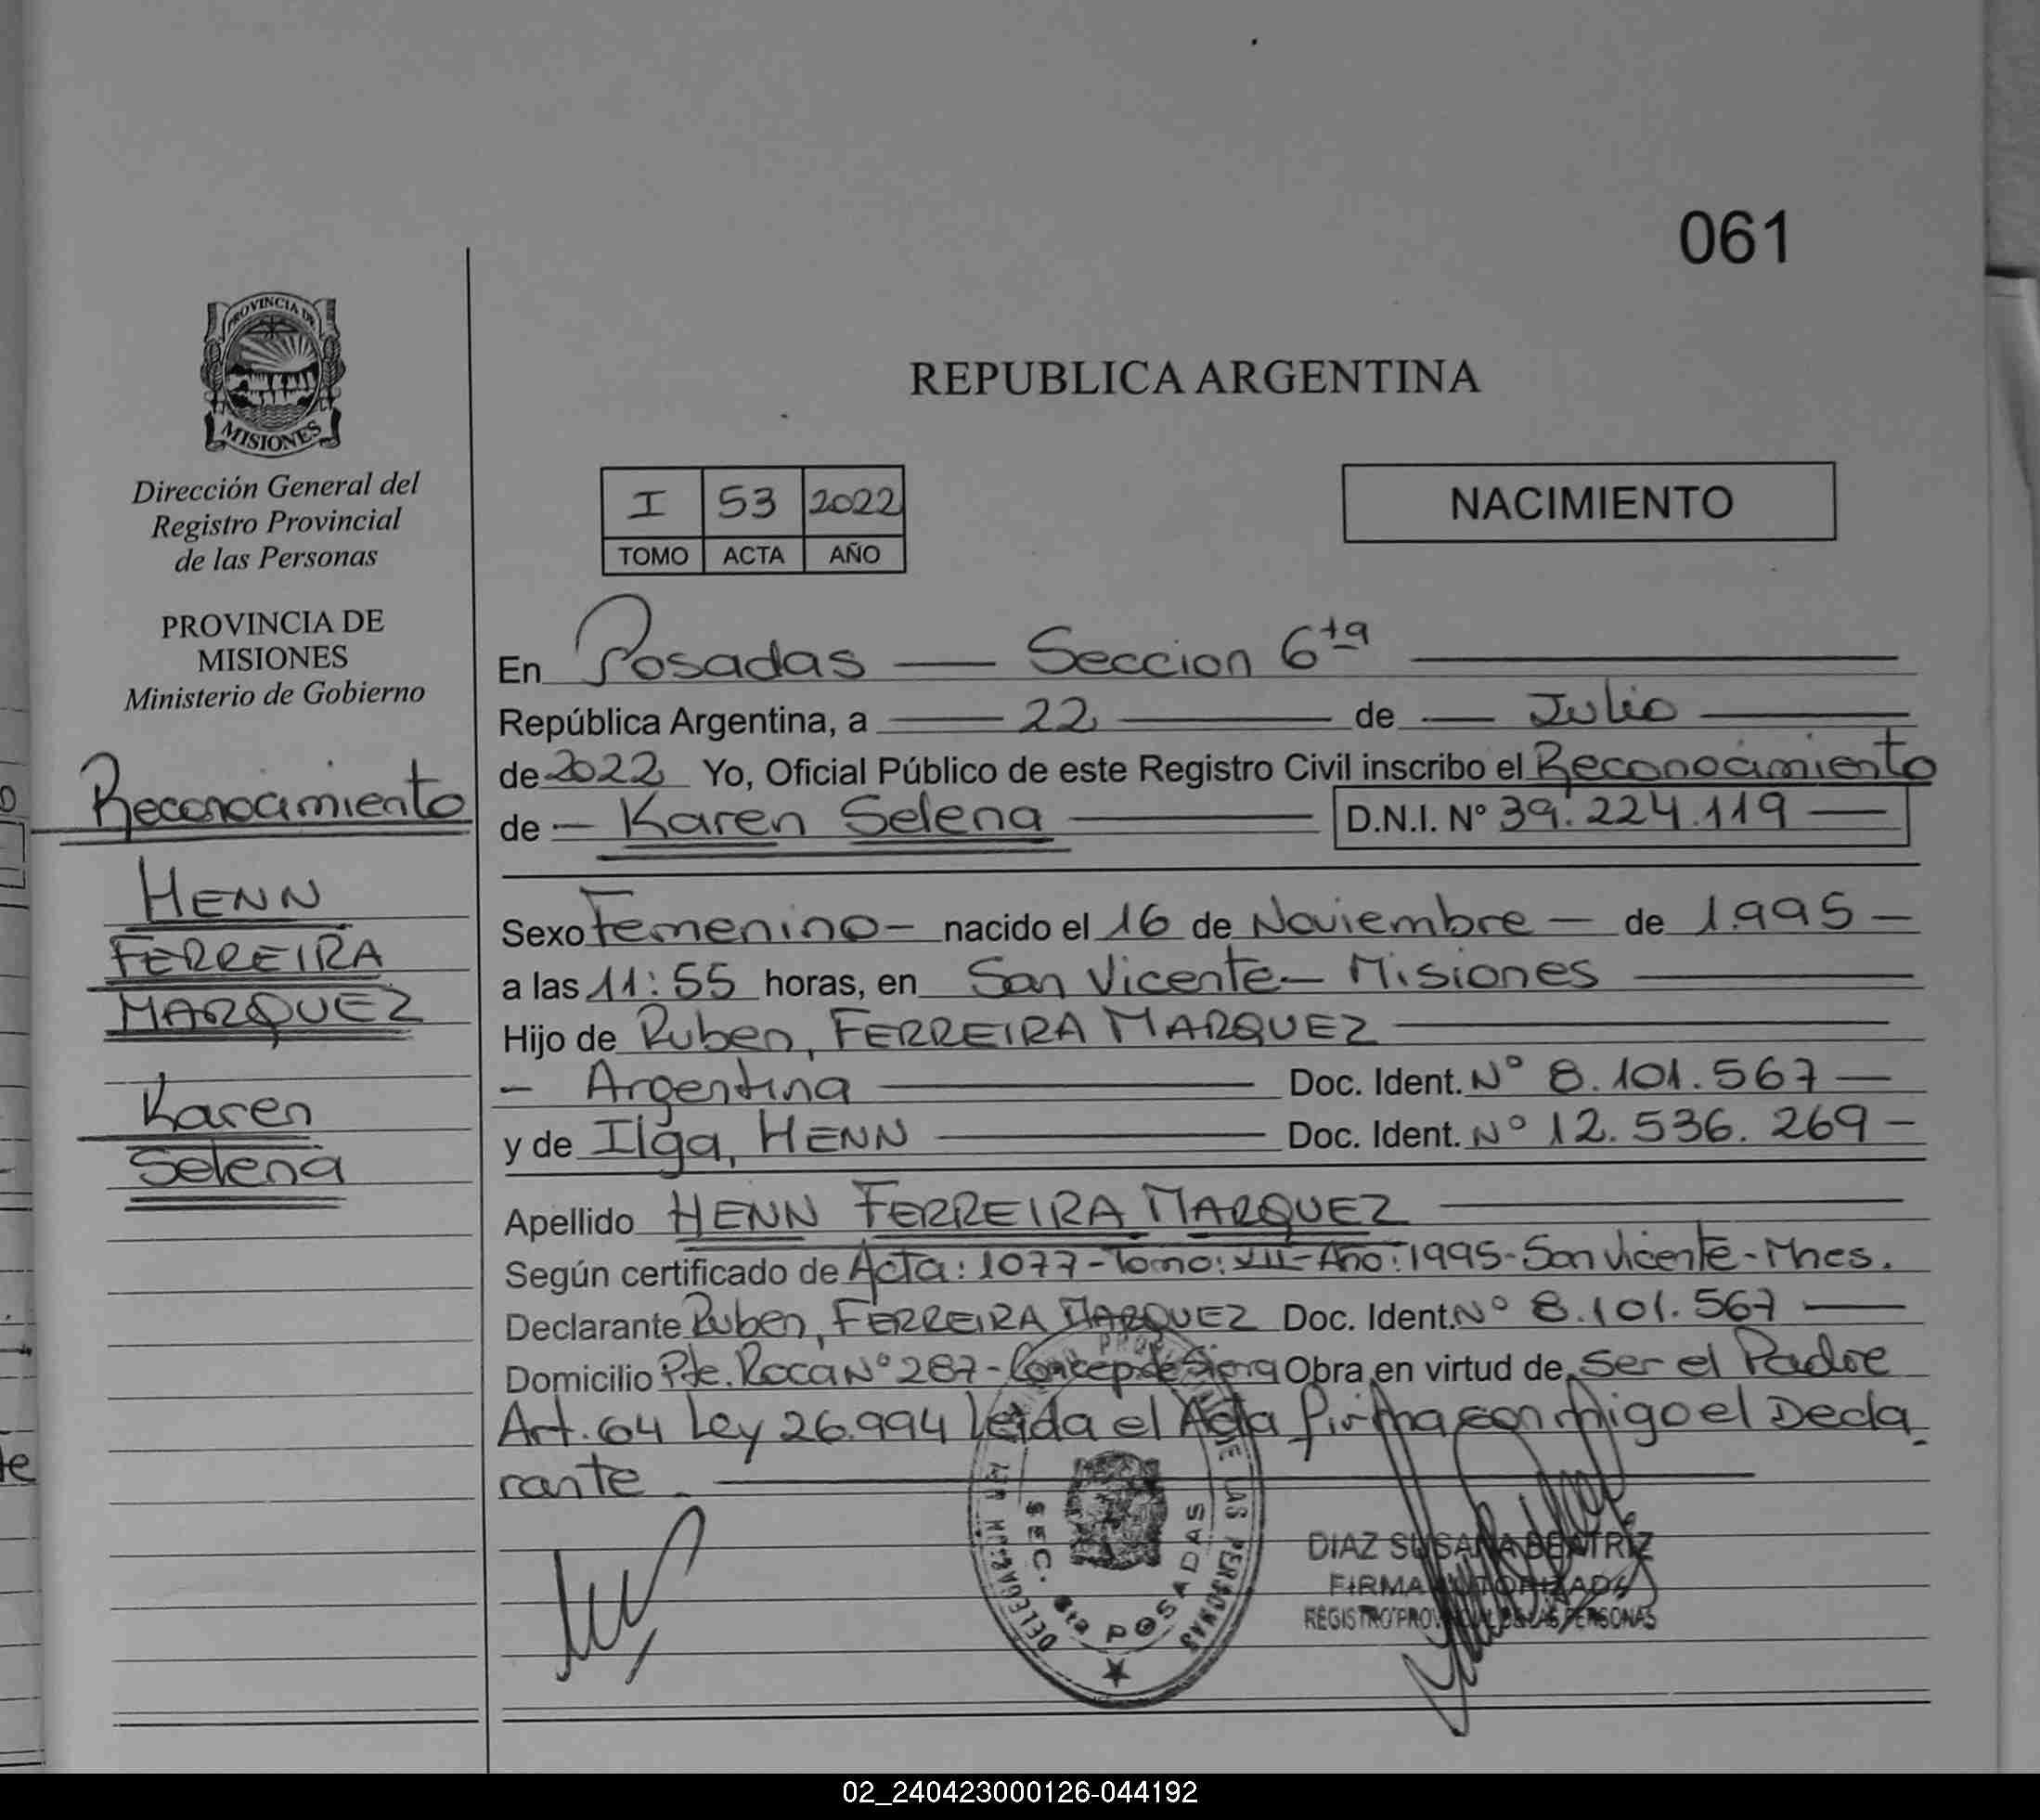 061
PROVINCIA DE
MISIONES
Dirección General del
Registro Provincial
de las Personas
PROVINCIA DE
MISIONES
Ministerio de Gobierno
Reconocimiento
HENN
FERREIRA
MARQUEZ
Karen
Selena
REPUBLICA ARGENTINA
I 53 2022
TOMO ACTA AÑO
NACIMIENTO
En Posadas — Seccion 6ta
República Argentina, a — 22 — de — Julio
de 2022 Yo, Oficial Público de este Registro Civil inscribo el Reconocimiento
de — Karen Selena — D.N.I. Nº 39.224.119 —
Sexo Femenino — nacido el 16 de Noviembre — de 1.995 —
a las 11:55 horas, en San Vicente — Misiones
Hijo de Ruben, FERREIRA MARQUEZ
— Argentina — Doc. Ident. Nº 8.101.567 —
y de Ilga, HENN — Doc. Ident. Nº 12.536.269 —
Apellido HENN FERREIRA MARQUEZ
Según certificado de Acta: 1077 - Tomo: VII - Año: 1995 - San Vicente - Mnes.
Declarante Ruben, FERREIRA MARQUEZ Doc. Ident. Nº 8.101.567 —
Domicilio Pte. Roca Nº 287 - Concep. de Sierra Obra en virtud de Ser el Padre
Art. 64 Ley 26.994 Leida el Acta firma conmigo el Decla
rante.
DE LAS PERSONAS
DELEGACION
SEC. 6ta POSADAS
DIAZ SUSANA BEATRIZ
FIRMA AUTORIZADA
REGISTRO PROVINCIAL DE LAS PERSONAS
02_240423000126-044192